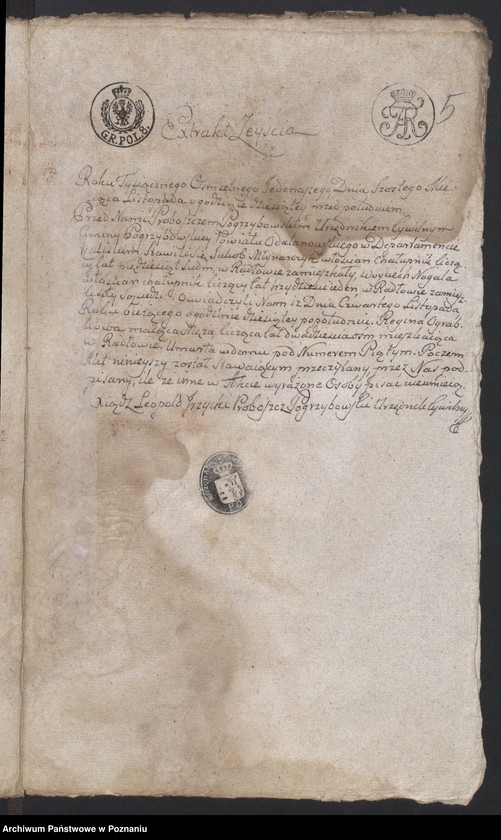 5
GR.POL.8.
Extrakt Zeyścia
Roku Tysiącznego Osmsetnego Jedenastego Dnia Szostego Mie-
siąca Listopada o godzinie dziesiątey przed południem
Przed Nami Proboszczem Pogrzybowskim Urzędnikiem Cywilnym
Gminy Pogrzybowskiey Powiatu Odolanowskiego w Departamencie
Kaliskim Stawili się Jakub Mynarczyk włościan chałupnik liczą-
cy lat pięćdziesiąt siedm, w Radłowie zamieszkały, Woyciech Nogala
włościan chałupnik liczący lat trzydzieści jeden w Radłowie zamiesz-
kały Sąsiedzi. Oświadczyli Nam iż Dnia Czwartego Listopada
Roku bieżącego o godzinie dziesiątey po południu, Regina Ograb-
kowa mająca Męża licząca lat dwadzieścia osm mieszkająca
w Radłowie Umarła w domu pod Numerem Piątym. Poczem
Akt ninieyszy został Stawaiącym przeczytany przez Nas pod-
pisany, ile że inne w Akcie wyrażone Osoby pisać nieumieią.
Xiądz Leopold Jrzycki Proboszcz Pogrzybowski Urzędnik Cywilny
Archiwum Państwowe w Poznaniu